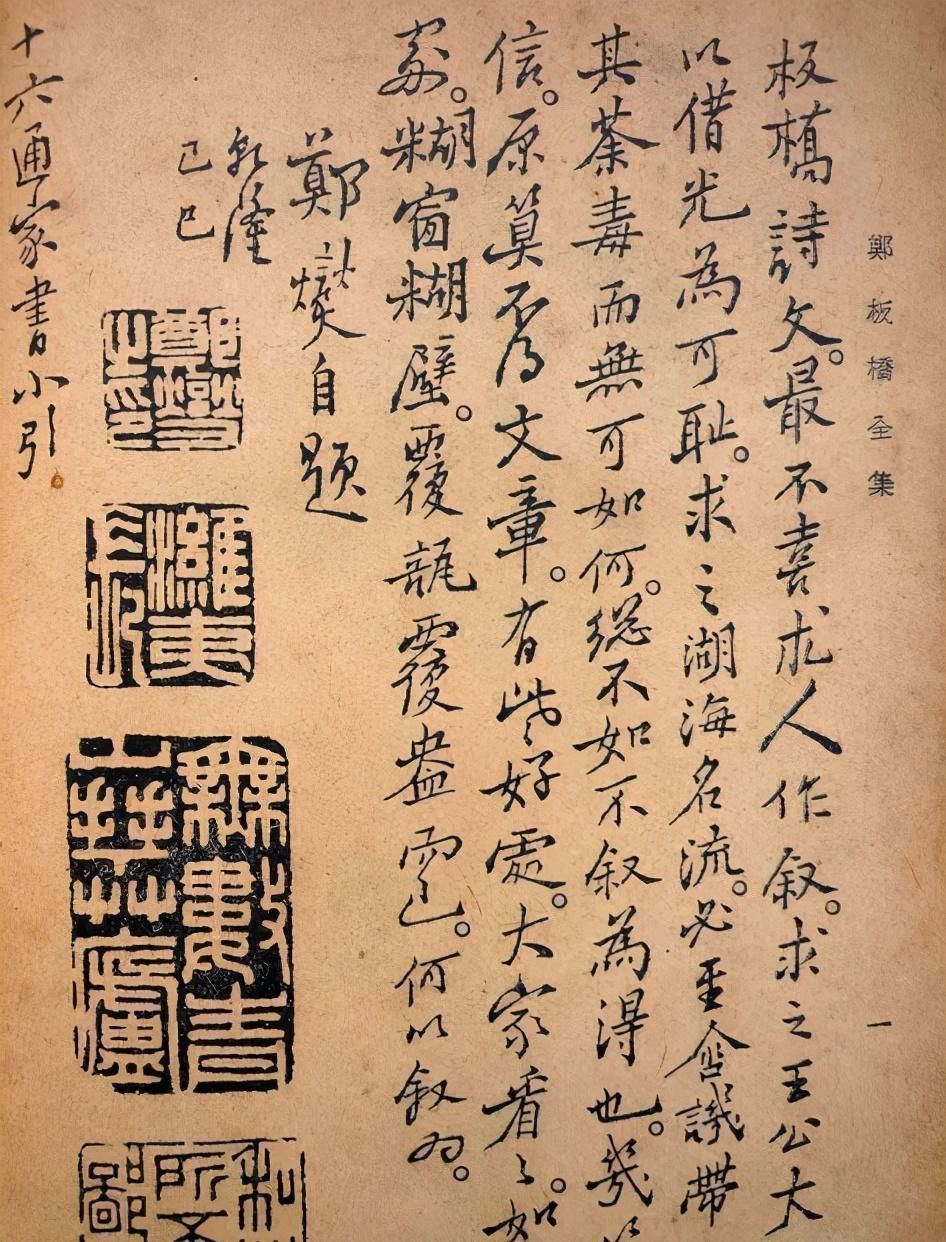 鄭板橋全集
一
板橋詩文。最不喜求人作叙。求之王公大
以借光為可恥。求之湖海名流。必至含譏帶
其荼毒而無可如何。總不如不叙為得也。幾
信。原算不得文章。有些好處。大家看々。如
處。糊窗糊壁。覆瓿覆盎而已。何以叙為。
鄭燮自題
乾隆
己巳
鄭燮之印
濰夷長
無數青山拜草廬
十六通家書小引